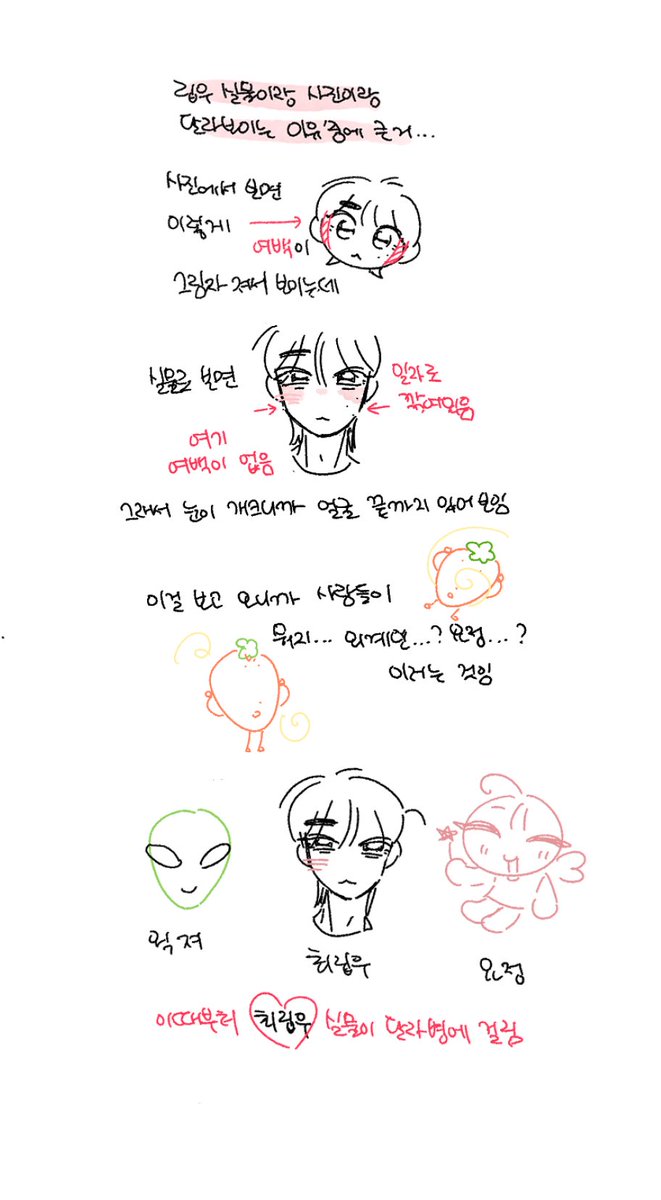 립우 실물이랑 사진이랑
달라보이는 이유 중에 큰거...
사진에서 보면
이렇게
여백이
그림자 져서 보이는데
실물로 보면
일라로
깎여있음
여기
여백이 없음
그래서 눈이 개크니까 얼굴 끝까지 있어보임
이걸 보고 오니까 사람들이
뭐지... 외계인...? 요정...?
이러는 것임
왹져
최립우
요정
이때부터 최립우 실물이 달라병에 걸림